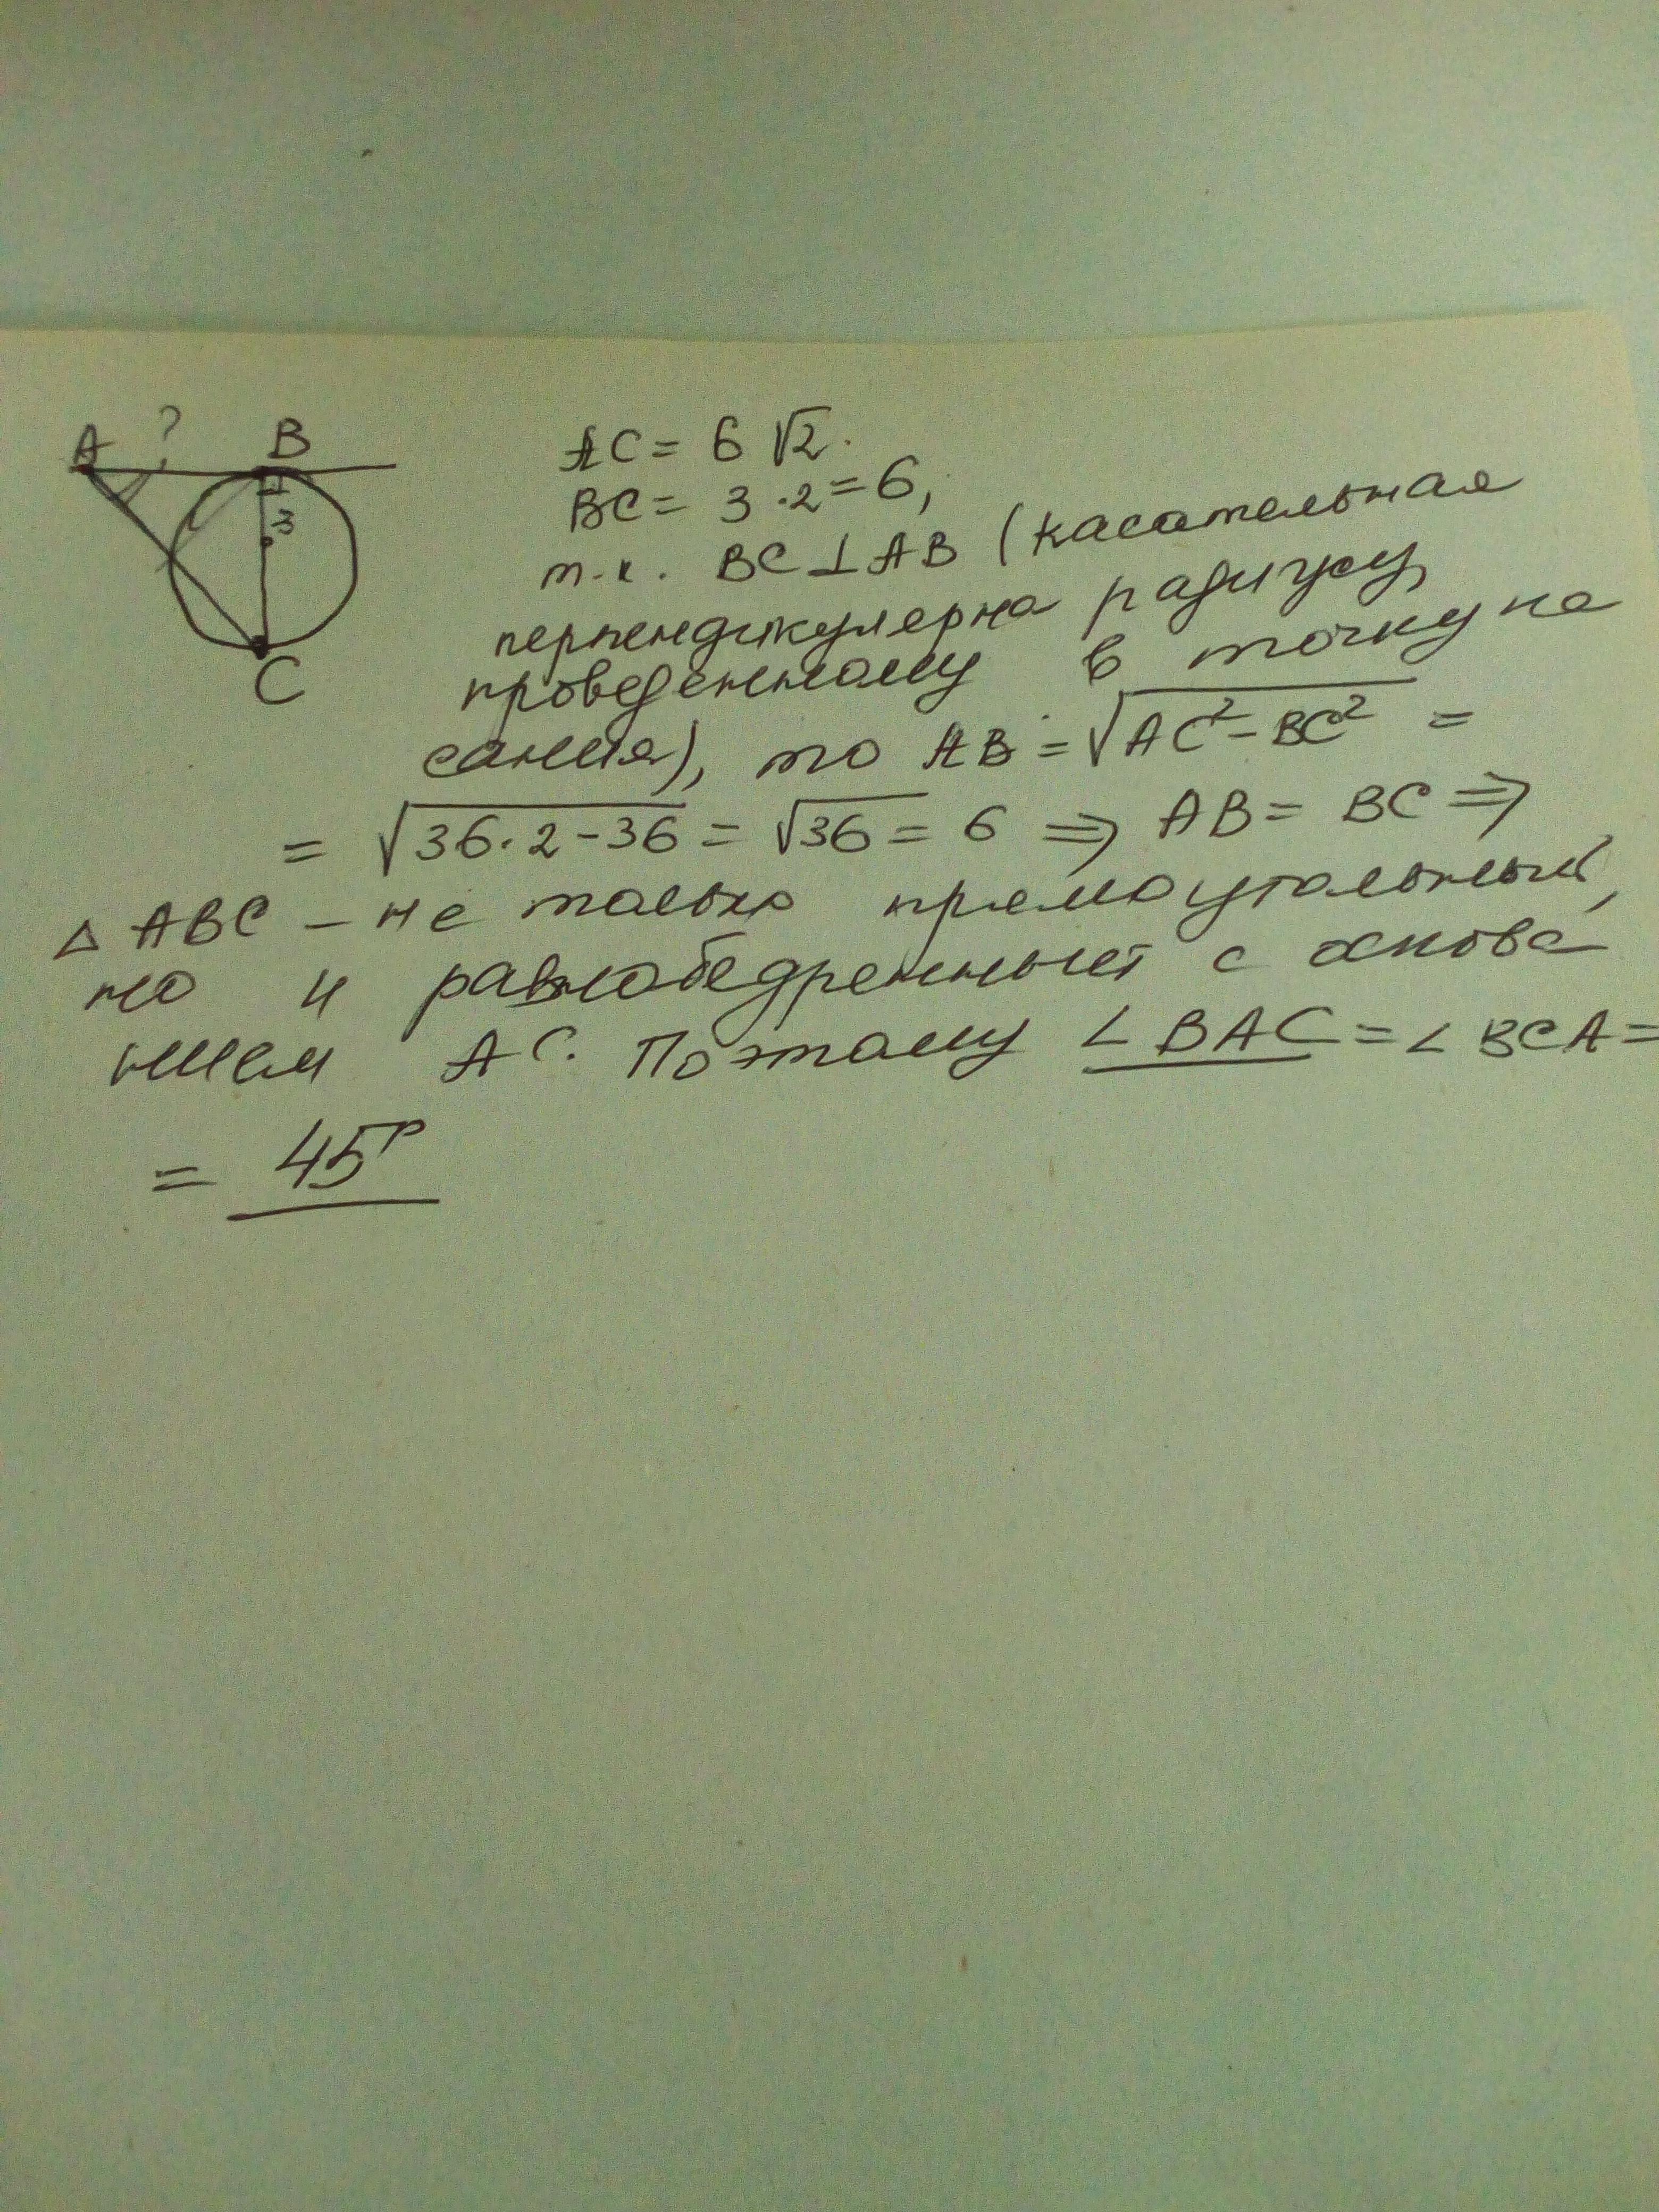 A ? B
3
C
AC = 6 √2.
BC = 3 · 2 = 6,
т.к. BC ⊥ AB (касательная
перпендикулярна радиусу,
проведенному в точку ка
сания), то AB = √AC² - BC² =
= √36·2-36 = √36 = 6 ⇒ AB = BC ⇒
△ ABC – не только прямоугольный,
но и равнобедренный с основа
нием AC. Поэтому ∠ BAC = ∠ BCA =
= 45°